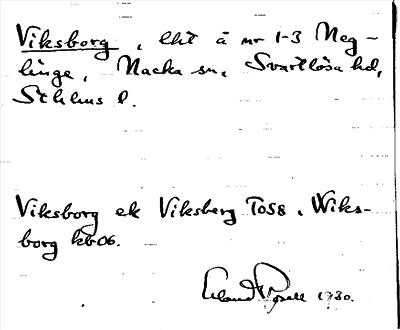 Viksborg, lht å nr 1-3 Neg-
linge, Nacka sn, Svartlösa hd,
Sthlms l.
Viksborg ek Viksberg T058, Wiks-
borg kb06.
Erland Rosell 1980.